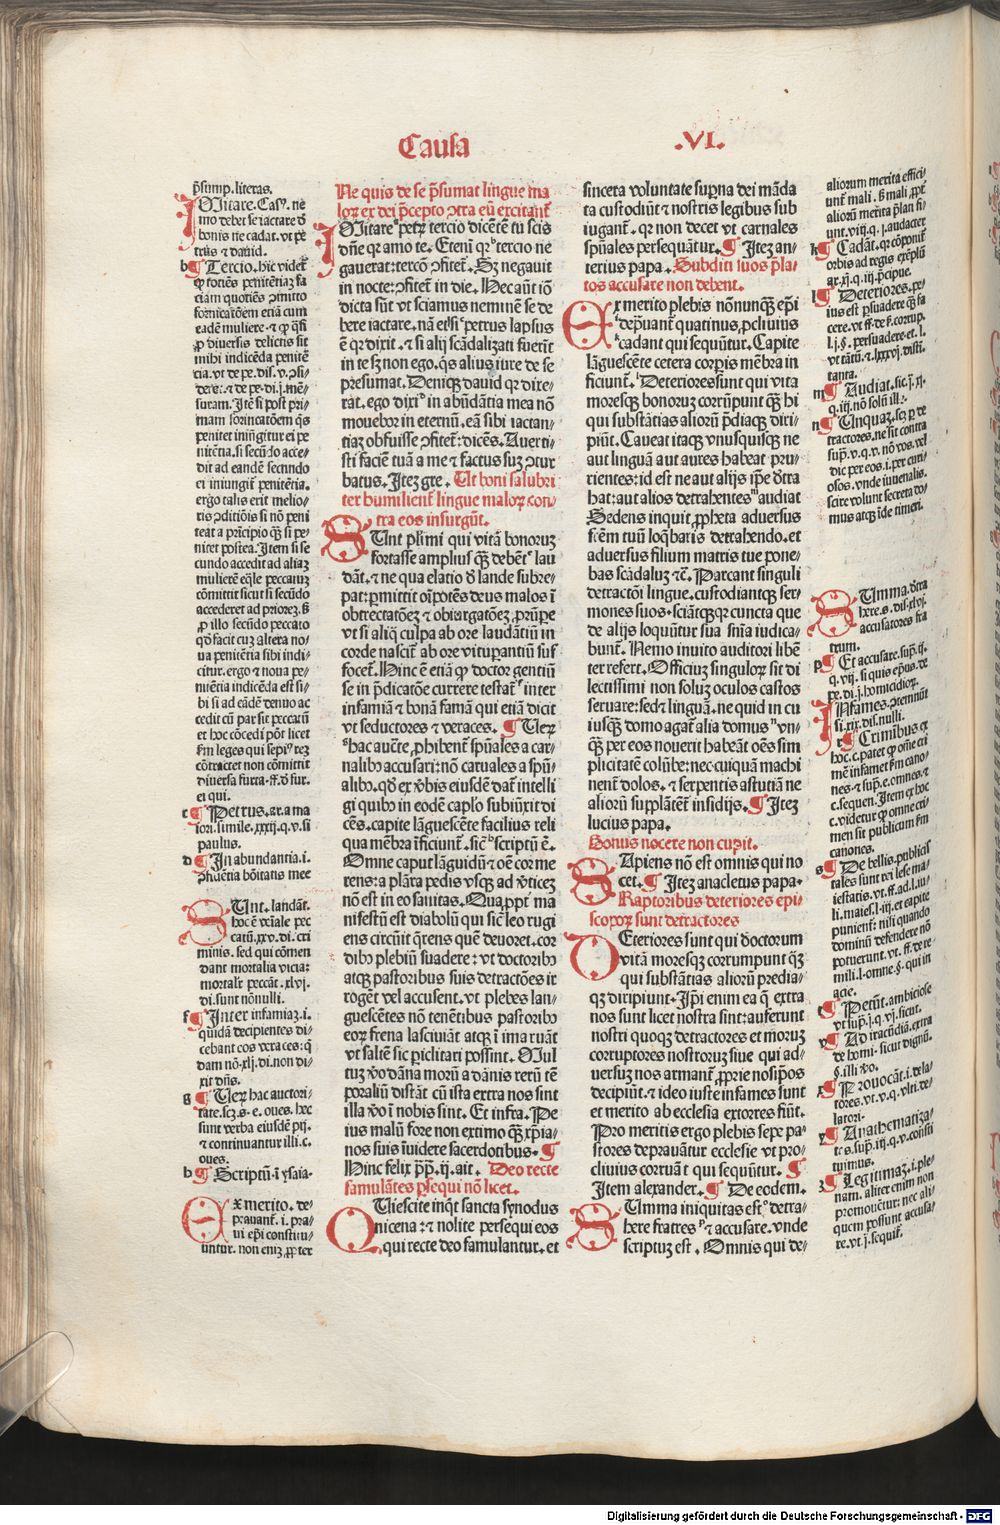 Causa .VI.
p̄sump. literas.
Uitare. Casꝰ. ne
mo debet se iactare ď
bonis ne cadat. vt pe
trus ⁊ dauid.
b ¶ Tercio. hic videt᷑
ꝙ totiēs penitētiaȝ fa
ciam quotiēs ꝯmitto
fornicatōem etiā cum
eadē muliere. ⁊ ꝙ q̄si
ꝓ diuersis delictis sit
mihi indicēda penitē
tia. vt de pe. dis. v. ꝯsi-
deret. ⁊ de pe. di. j. mē-
suram. Itē si post pri
mam fornicatōem q̄s
penitet iniūgitur ei pe
nitētia, si secūdo acce-
dit ad eandē secundo
ei iniungit᷑ penitētia.
ergo talis erit melio-
ris ꝯditiōis si nō peni
teat a prīcipio q̄ȝ si pe-
niret postea. Item si se
cundo accedit ad aliaȝ
mulierē eq̄le peccatuȝ
cōmittit sicut si secūdo
accederet ad priorez. sȝ
ꝓ illo secūdo peccato
qd̄ facit cuȝ altera no-
ua penitētia sibi indi-
citur. ergo ⁊ noua pe-
nitētia indicēda est si-
bi si ad eādē denuo ac
cedit cū par sit peccatū
et hoc cōcedi pōt licet
fm̄ leges qui sepiꝰ rez
cōtractet non cōmittit
diuersa furta. ff. ď fur.
ei qui.
c ¶ Petrus. ar. a ma
iori. simile. xxxij. q. v. si
paulus.
d ¶ In abundantia. i.
ꝯfluētia bōitatis mee
SUnt. landāt.
hoc ē veniale pec
catū. xxv. di. cri
minis. sed qui cōmen
dant mortalia vicia:
mortalr̄ peccāt. xlvj.
di. sunt nōnulli.
f ¶ Inter infamiaȝ. i.
quidā decipientes di-
cebant eos veraces: q̄
dam nō. xlj. di. non di-
xit dn̄s.
g ¶ Ueꝝ hac auctori-
tate. scȝ. s. e. oues. hec
sunt verba eiusdē pij.
⁊ continuantur illi. c.
oues.
h ¶ Scriptū. i ysaia.
EX merito. de-
prauant᷑. i. pra-
ui ep̄i constitu-
untur. non eniȝ ꝓpter
Ne quis de se p̄sumat lingue ma
loꝝ ex dei p̄cepto ꝯtra eū excitant᷑
IUitare petꝝ tercio dicētē tu scis
dn̄e qꝛ amo te. Etenī qꝛ tercio ne
gauerat: tercō ꝯfitet᷑. Sȝ negauit
in nocte: ꝯfitet᷑ in die. Hec aūt iō
dicta sūt vt sciamus neminē se de
bere iactare. nā etsi petrus lapsus
ē qꝛ dixit. ⁊ si alij scādalizati fuerīt
in te sȝ non ego. q̄s alius iure de se
presumat. Deniqȝ dauid qꝛ dixe-
rat. ego dixi in abūdātia mea nō
mouebor in eternū. eā sibi iactan-
tiaȝ obfuisse ꝯfitet᷑: dicēs. Auerti-
sti faciē tuā a me ⁊ factus suȝ ꝯtur
batus. Iteȝ gre. Ut boni salubri
ter humilient᷑ lingue maloꝝ con-
tra eos insurgūt.
SUnt pl̄imi qui vitā bonoruȝ
fortasse amplius q̄ȝ debēt lau
dāt. ⁊ ne qua elatio ď laude subre-
pat: ꝑmittit oīpotēs deus malos ī
obtrectatōeȝ ⁊ obiurgatōeȝ ꝓrūpe
vt si aliq̄ culpa ab ore laudātiū in
corde nascit᷑ ab ore vituꝑantiū suf
focet᷑. Hinc ē etiā ꝙ doctor gentiū
se in p̄dicatōe currere testat᷑ inter
infamiā ⁊ bonā famā qui etiā dicit
vt seductores ⁊ veraces. ¶ Ueꝝ
hac auct̄e ꝓhibent᷑ spūales a car-
nalibꝰ accusari: nō carnales a spūa-
libꝰ. qd̄ ex ꝟbis eiusdē dat᷑ intelli
gi quibꝰ in eodē capl̄o subiūxit di
cēs. capite lāguescēte facilius reli
qua mēbra īficiunt᷑. sic scriptū ē.
Omne caput lāguidū ⁊ oē cor me
rens: a plāta pedis vsqȝ ad ꝟticeȝ
nō est in eo sanitas. Qua ꝓpt᷑ ma
nifestū est diabolū qui sic̄ leo rugi
ens circūit q̄rens quē deuoret. cor
dibꝰ plebiū suadere: vt doctoribꝰ
atqȝ pastoribus suis detractōes ir
rogēt vel accusent. vt plebes lan-
guescētes nō tenētibus pastoribꝰ
eoꝝ frena lasciuiāt atqȝ ī ima ruāt
vt saltē sic periclitari possint. Mul
tuȝ ꝟo dāna morū a dānis rerū tē
poraliū distāt cū ista extra nos sint
illa ꝟo ī nobis sint. Et infra. Pe
ius malū fore non extimo q̄ȝ xp̄ia-
nos suis īuidere sacerdotibus. ¶
Hinc felix pp̄. ij. ait. Deo recte
famulātes ꝑsequi nō licet.
QUiescite inq̄t sancta synodus
nicena: ⁊ nolite persequi eos
qui recte deo famulantur. et
sincera voluntate supna dei māda
ta custodiūt ⁊ nostris legibus sub
iugant᷑. qꝛ non decet vt carnales
spūales persequātur. ¶ Iteȝ an-
terius papa. Subditi suos p̄la-
tos accusare non debent.
EX merito plebis nōnunqȝ ep̄i
depuant᷑ quatinus ꝓcliuius
cadant qui sequūtur. Capite
lāguescēte cetera corpis mēbra in
ficiunt᷑. Deteriores sunt qui vita
moresqȝ bonoruȝ corrūpunt q̄ȝ hi
qui substātias aliorū p̄diaqȝ diri-
piūt. Caueat itaqȝ vnusquisqȝ ne
aut linguā aut aures habeat pru-
rientes: id est ne aut alijs ip̄e ďtra
hat: aut alios detrahentes audiat
Sedens inquit ꝓpheta aduersus
fr̄em tuū loq̄baris detrahendo. et
aduersus filium matris tue pone-
bas scādaluȝ ⁊c̄. Parcant singuli
detractōi lingue. custodiantqȝ ser-
mones suos. sciātqȝ qꝛ cuncta que
de alijs loquūtur sua sn̄ia iudica-
bunt᷑. Nemo inuito auditori libē
ter refert. Officiuȝ singuloꝝ sit di
lectissimi non soluȝ oculos castos
seruare: sed ⁊ linguā. ne quid in cu
iusqȝ domo agat᷑ alia domus vn-
q̄ȝ per eos nouerit habeāt oēs sim
plicitatē colūbe: nec cuiquā machi
nent᷑ dolos. ⁊ serpentis astutiā ne
aliorū supplātēt᷑ insidijs. ¶ Iteȝ
lucius papa.
Bonus nocere non cupit.
SApiens nō est omnis qui no
cet. ¶ Iteȝ anacletus papa.
Raptoribus deteriores epi-
scopoꝝ sunt detractores
DEteriores sunt qui doctorum
vitā moresqȝ corrumpunt q̄ȝ
qui substātias aliorū predia-
qȝ diripiunt. Ip̄i enim ea q̄ extra
nos sunt licet nostra sint: auferunt
nostri quoqȝ detractores et moruȝ
corruptores nostroruȝ siue qui ad-
uersuȝ nos armant᷑ ꝓprie nosip̄os
decipiūt. ⁊ ideo iuste infames sunt
et merito ab ecclesia extorres fiūt.
Pro meritis ergo plebis sepe pa-
stores deprauātur ecclesie vt pro-
cliuius corruāt qui sequūtur. ¶
Item alexander. ¶ De eodem.
SUmma iniquitas est detra-
here fratres ⁊ accusare. vnde
scriptuȝ est. Omnis qui de-
aliorum merita effici-
unt᷑ mali. sȝ mali ꝓpt᷑
aliorū merita p̄lan fi-
unt. viij. q. j. audacter
k ¶ Cadāt. qꝛ cōponit᷑
orbis ad regis exēplū
ar. xj. q. iij. p̄cipue.
l ¶ Deteriores. pe-
ius est ꝑsuadere q̄ȝ fa
cere. vt ff. de ẜ. corrup.
l. j. §. persuadere. et. l.
vt tātū. ⁊. lxxvj. disti.
tanta.
m ¶ Audiat. sic. j. xj.
q. iij. nō solū ill̓.
n ¶ Unquaȝ. scꝫ. p de
tractores. ne sit contra
sup̄. v. q. v. nō vos. vel
dic per eos. i. per curi-
osos. vnde iuuenalis.
scire volunt secreta do-
mus atqȝ īde timeri.
SUmma. ďtra
here. s. dis. xlvj.
accusatores fra
trum.
p ¶ Et accusare. sup̄. ij.
q. vij. si quis ep̄us. de
pe. di. j. homicidioꝝ.
Infames. ꝯtemnūt
si. xix. dis. nulli.
r ¶ Crimībus. ex
hoc. c. patet ꝙ oē cri
mē infamet fm̄ cano-
nes. ⁊ sup̄. e. omnes. ⁊
c. sequen. Item ex hoc
c. videtur ꝙ omne cri
men sit publicum fm̄
canones.
s ¶ De bellis. publicis
tales sunt rei lese ma-
iestatis. vt. ff. ad. l. iu-
li. maies. l. iij. et capite
puniēt᷑: nisi quando
dominū defendere nō
potuerunt. vt. ff. de re
mili. l. omne. §. qui in
acie.
t ¶ Petūt. ambiciose
vt sup̄. j. q. vj. sicut.
v ¶ Ad iracūdiā. extra
de homi. sicut dignū.
§. illi ꝟo.
x ¶ Prouocāt. i. dela-
tores. vt. v. q. vlti. de-
latori.
y ¶ Anathematiza-
te. s. sup̄. iij. q. v. consti
tuimus.
z ¶ Legitimaȝ. i. ple-
nam. aliter enim non
promouetur: nec ali-
quem possunt accusa-
re. vt. j. sequit᷑.
Digitalisierung gefördert durch die Deutsche Forschungsgemeinschaft - DFG